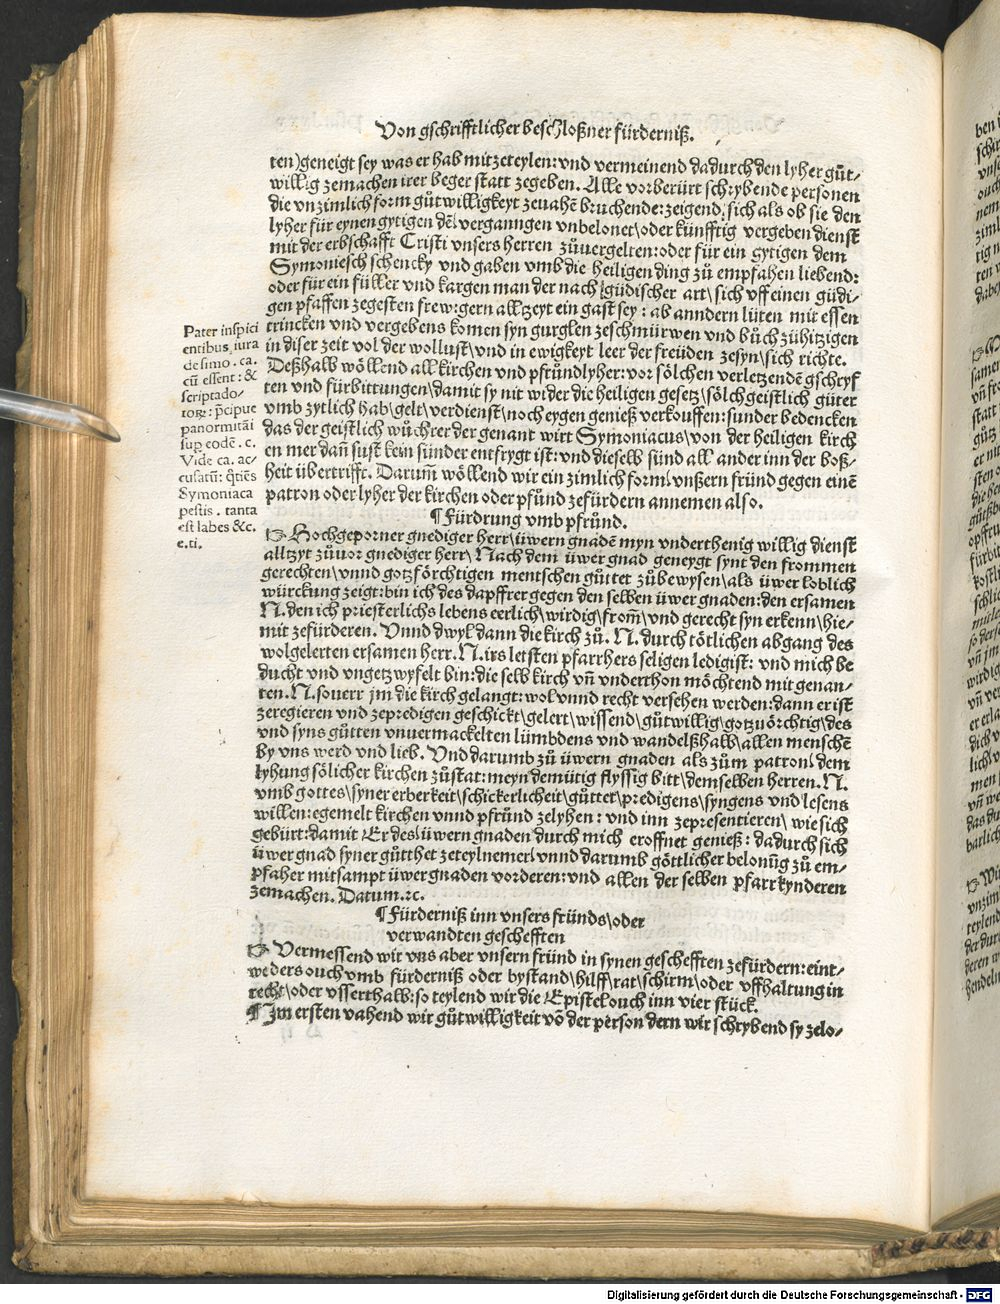 Von gschrifftlicher beschloßner fürderniß.
ten)geneigt sey was er hab mitzeteylen:vnd vermeinend dadurch den lyher gůt⸗
willig zemachen irer beger statt zegeben. Alle vorberürt schrybende personen
die vnzimlich form gůtwilligkeyt zeuahē bruchende:zeigend sich als ob sie den
lyher für eynen gytigen dē vergangnen vnbelonet/oder künfftig vergeben dienst
mit der erbschafft Cristi vnsers herren zůuergelten:oder für ein gytigen dem
Symoniesch schencky vnd gaben vmb die heiligen ding zů empfahen liebend:
oder für ein füller vnd kargen man der nach güdischer art\sich vff einen güdi⸗
gen pfaffen zegesten frew:gern allzeyt ein gast sey : ab anndern lüten mit essen
trincken vnd vergebens komen syn gurglen zeschmürwen vnd bůch zühitzigen
in diser zeit vol der wollust\vnd in ewigkeyt leer der freüden zesyn\sich richte.
Deßhalb wöllend all kirchen vnd pfründlyher: vor sölchen verletzendē gschryf
ten vnd fürbittungen/damit sy nit wider die heiligen gesetz\sölch geistlich güter
vmb zytlich hab\gelt\verdienst\noch eygen genieß verkouffen:sunder bedencken
das der geistlich wůchrer der genant wirt Symoniacus\von der heiligen kirch
en mer dañ sust kein sünder entfrygt ist:vnd dieselb sünd all ander inn der boß⸗
heit übertrifft. Darum̄ wöllend wir ein zimlich form vnßern fründ gegen einē
patron oder lyher der kirchen oder pfründ zefürdern annemen also.
Pater inspici
entibus iura
de simo. ca.
cū essent: &
scriptado⸗
tor: p̄cipue
panormitāi
sup codē. c.
Vide ca. ac⸗
cusatū: q̄tiēs
Symoniaca
pestis. tanta
est labes &c.
e.ti.
¶Fürdrung vmb pfründ.
☞ Hochgeporner gnediger herr\üwern gnadē myn vnderthenig willig dienst
alltzyt zůuor gnediger herr\ Nach dem üwer gnad geneygt synt den frommen
gerechten\vnnd gotzförchtigen mentschen gůttet zůbewysen\als üwer loblich
würckung zeigt:bin ich des dapffrer gegen den selben üwer gnaden:den ersamen
N. den ich priesterlichs lebens eerlich\wirdig\from̄\vnd gerecht syn erkenn\hie⸗
mit zefürderen. Vnnd dwyl dann die kirch zů. N. durch tötlichen abgang des
wolgelerten ersamen herr. N. irs letsten pfarrhers seligen ledig ist: vnd mich be
ducht vnd vngetzwyfelt bin:die selb kirch vñ vnderthon möchtend mit genan⸗
ten. N. souerr jm die kirch gelangt: wol vnnd recht versehen werden:dann er ist
zeregieren vnd zepredigen geschickt\gelert\wissend\gůtwillig\gotzuörchtig\des
vnd syns gůtten vnuermackelten lümbdens vnd wandelßhalb\allen menschē
by vns werd vnd lieb. Vnd darumb zů üwern gnaden als zům patron\dem
lyhung sölicher kirchen zůstat:meyn demütig flyssig bitt\demselben herren. N.
vmb gottes\syner erberkeit\schickerlicheit\gůtter\predigens\syngens vnd lesens
willen:egemelt kirchen vnnd pfründ zelyhen : vnd inn zepresentieren\ wie sich
gebürt:damit Er des üwern gnaden durch mich eroffnet genieß : dadurch sich
üwer gnad syner gůtthet zeteylnemer\vnnd darumb göttlicher belonūg zů em⸗
pfaher mitsampt üwer gnaden vorderen:vnd allen der selben pfarrkynderen
zemachen. Datum.ꝛc.
¶Fürderniß inn vnsers fründs\oder
verwandten geschefften
☞ Vermessend wir vns aber vnsern fründ in synen geschefften zefürdern:eint⸗
weders ouch vmb fürderniß oder bystand\hilff\rat\schirm\oder vffhaltung in
recht\oder vsserthalb:so teylend wir die Epistel ouch inn vier stück.
¶Im ersten vahend wir gůtwilligkeit vō der person dern wir schrybend sy zelo⸗
Digitalisierung gefördert durch die Deutsche Forschungsgemeinschaft - DFG